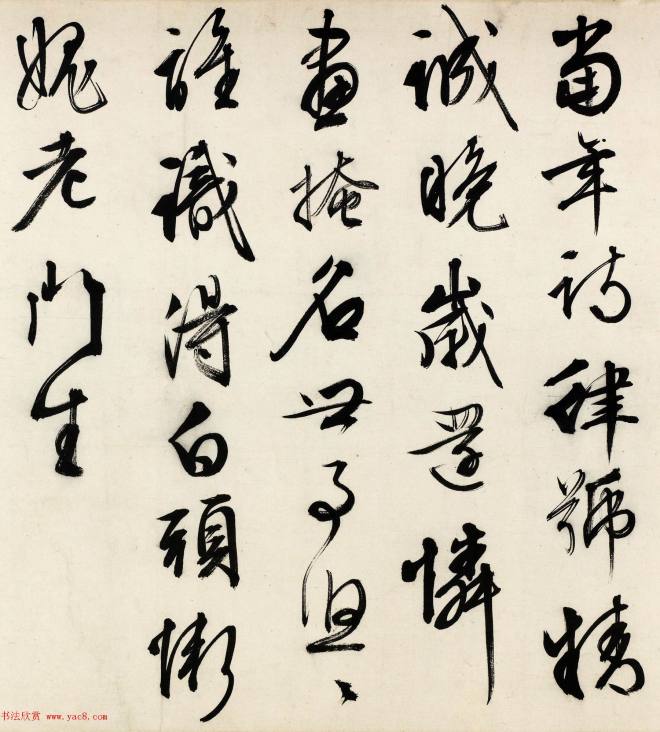 當年詩律號精
誠晚歲還憐
畫掩名世事悠〻
誰識得白頭慚
媿老門生
书法欣赏 www.yac8.com